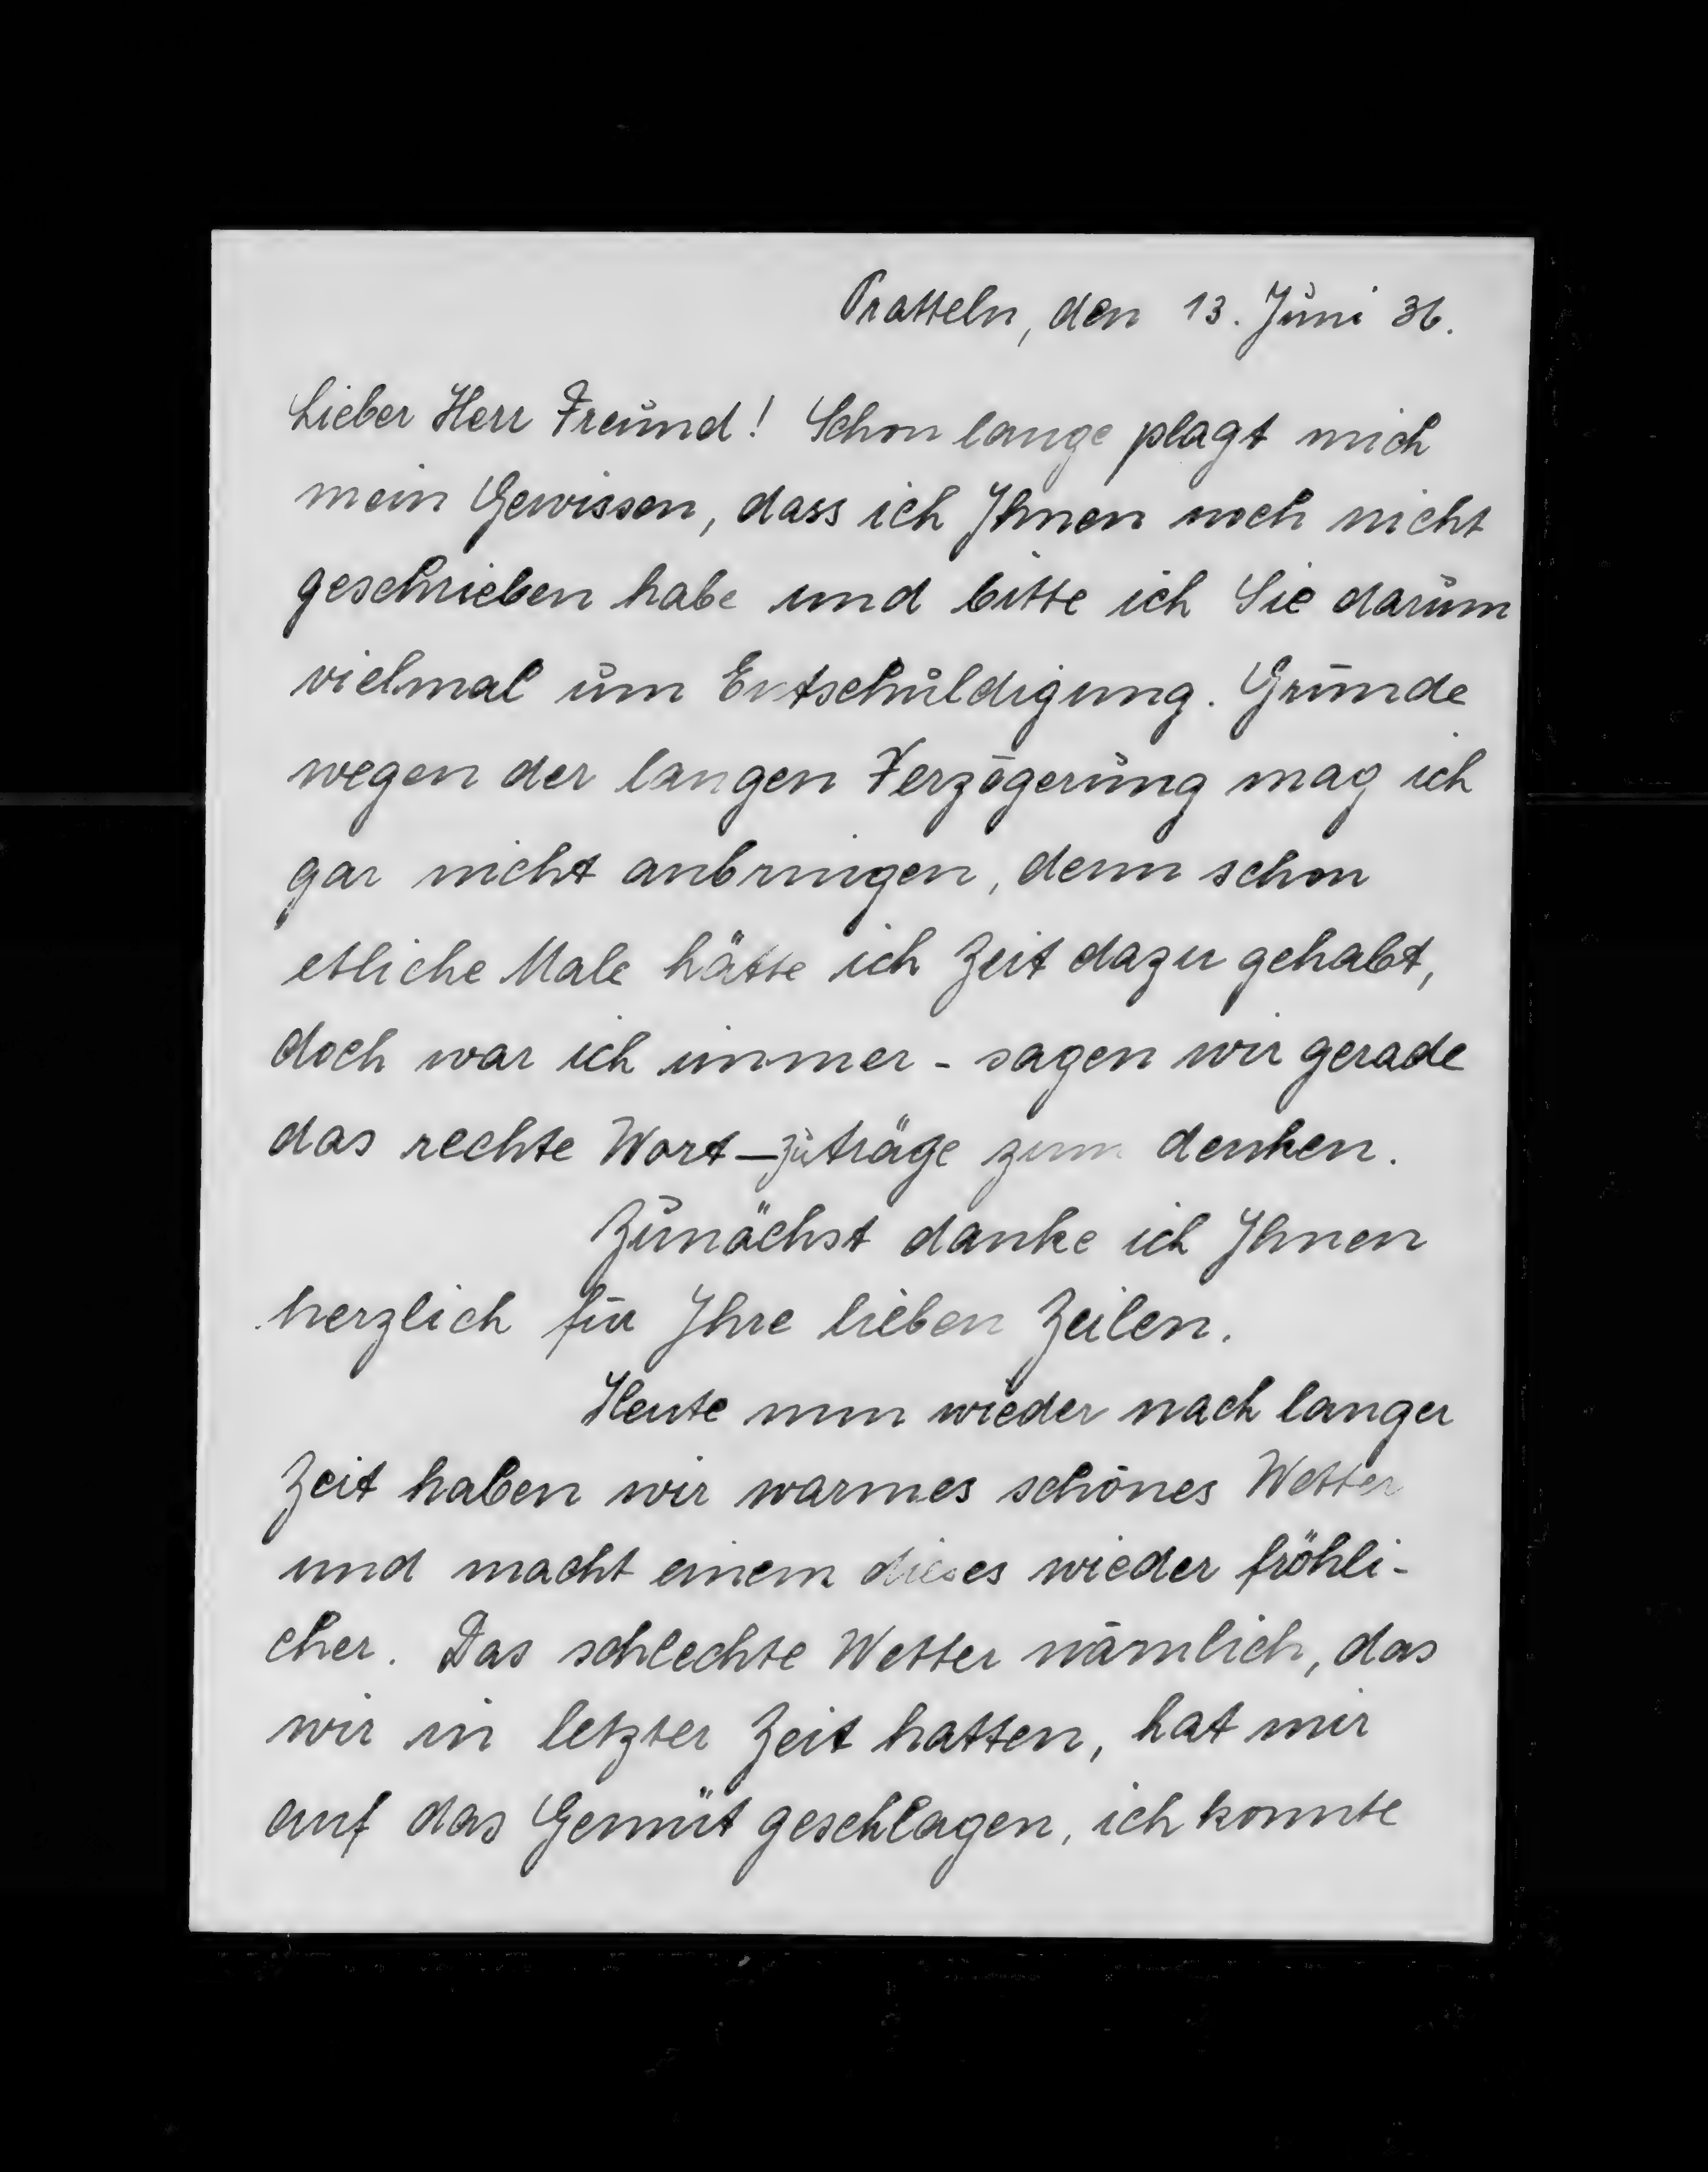 Pratteln, den 13. Juni 36.
Lieber Herr Freund! Schon lange plagt mich
mein Gewissen, dass ich Ihnen noch nicht
geschrieben habe und bitte ich Sie darum
vielmal um Entschuldigung. Gründe
wegen der langen Verzögerung mag ich
gar nicht anbringen, denn schon
etliche Male hätte ich Zeit dazu gehabt,
doch war ich immer - sagen wir gerade
das rechte Wort — zu träge zum denken.
Zunächst danke ich Ihnen
herzlich für Ihre lieben Zeilen.
Heute nun wieder nach langer
Zeit haben wir warmes schönes Wetter
und macht einem dieses wieder fröhli-
cher. Das schlechte Wetter nämlich, das
wir in letzter Zeit hatten, hat mir
auf das Gemüt geschlagen, ich konnte